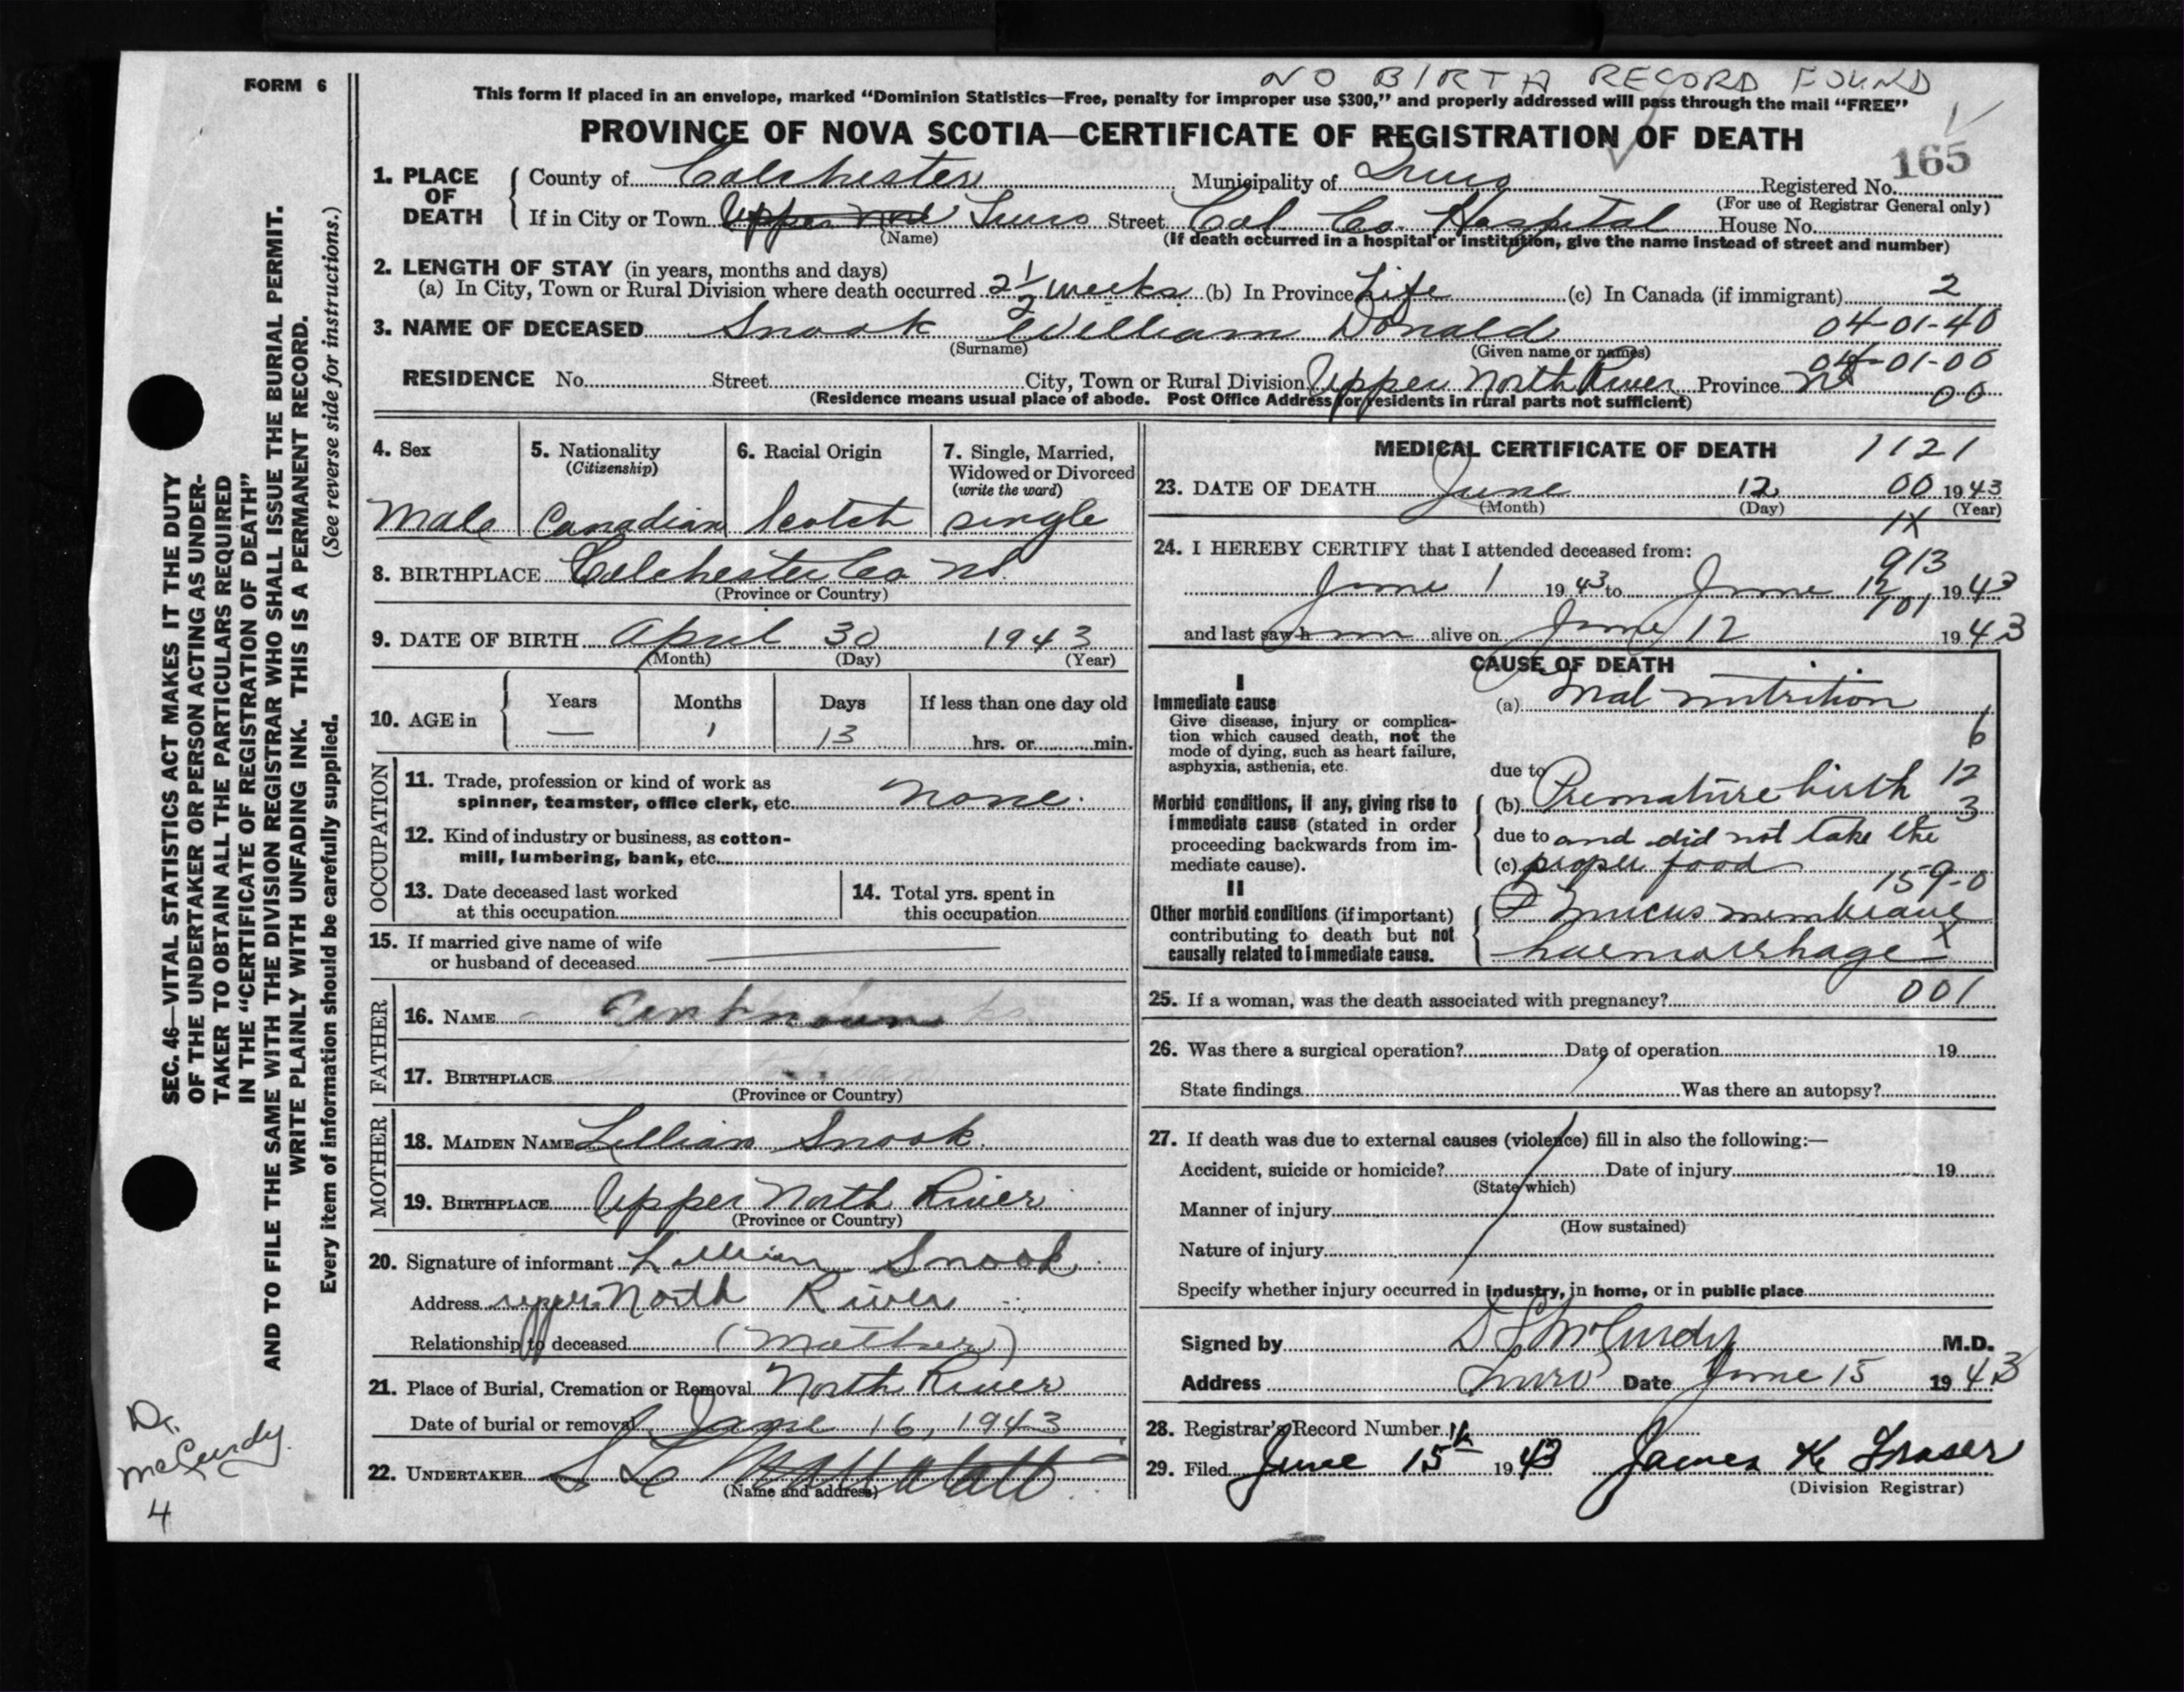 NO BIRTH RECORD FOUND
FORM 6
This form if placed in an envelope, marked "Dominion Statistics—Free, penalty for improper use $300," and properly addressed will pass through the mail "FREE"
PROVINCE OF NOVA SCOTIA—CERTIFICATE OF REGISTRATION OF DEATH
165
1. PLACE OF DEATH
County of Colchester Municipality of Truro Registered No.
(For use of Registrar General only)
If in City or Town Upper Nort Truro Street Col. Co. Hospital House No.
(Name) (If death occurred in a hospital or institution, give the name instead of street and number)
2. LENGTH OF STAY (in years, months and days)
(a) In City, Town or Rural Division where death occurred 2 1/2 weeks (b) In Province Life (c) In Canada (if immigrant) 2
3. NAME OF DECEASED Snook William Donald 04-01-40
(Surname) (Given name or names)
04-01-00
RESIDENCE No. Street City, Town or Rural Division Upper North River Province NS 00
(Residence means usual place of abode. Post Office Address for residents in rural parts not sufficient)
4. Sex
Male
5. Nationality
(Citizenship)
Canadian
6. Racial Origin
Scotch
7. Single, Married,
Widowed or Divorced
(write the word)
single
8. BIRTHPLACE Colchester Co NS.
(Province or Country)
9. DATE OF BIRTH April 30 1943
(Month) (Day) (Year)
10. AGE in
Years Months Days If less than one day old
— 1 13 hrs. or min.
OCCUPATION
11. Trade, profession or kind of work as
spinner, teamster, office clerk, etc. none.
12. Kind of industry or business, as cotton-
mill, lumbering, bank, etc.
13. Date deceased last worked
at this occupation
14. Total yrs. spent in
this occupation
15. If married give name of wife
or husband of deceased
FATHER
16. NAME unknown
17. BIRTHPLACE
(Province or Country)
MOTHER
18. MAIDEN NAME Lillian Snook.
19. BIRTHPLACE Upper North River
(Province or Country)
20. Signature of informant Lillian Snook
Address upper North River
Relationship to deceased (Mother)
21. Place of Burial, Cremation or Removal North River
Date of burial or removal June 16, 1943
22. UNDERTAKER
(Name and address)
MEDICAL CERTIFICATE OF DEATH 1121
23. DATE OF DEATH June 12 00 1943
(Month) (Day) (Year)
1X
24. I HEREBY CERTIFY that I attended deceased from:
913
June 1 1943 to June 12 1943
101
and last saw him alive on June 12 1943
CAUSE OF DEATH
I
Immediate cause
Give disease, injury or complica-
tion which caused death, not the
mode of dying, such as heart failure,
asphyxia, asthenia, etc.
(a) Mal nutrition
6
due to
12
Morbid conditions, if any, giving rise to
immediate cause (stated in order
proceeding backwards from im-
mediate cause).
(b) Premature birth
3
due to and did not take the
(c) proper food
159-0
II
Other morbid conditions (if important)
contributing to death but not
causally related to immediate cause.
mucus membrane
haemorrhage X
25. If a woman, was the death associated with pregnancy? 001
26. Was there a surgical operation? Date of operation 19
State findings Was there an autopsy?
27. If death was due to external causes (violence) fill in also the following:—
Accident, suicide or homicide? Date of injury 19
(State which)
Manner of injury
(How sustained)
Nature of injury
Specify whether injury occurred in industry, in home, or in public place
Signed by D S McCurdy M.D.
Address Truro Date June 15 1943
28. Registrar's Record Number
29. Filed June 15th 1943 James K Fraser
(Division Registrar)
SEC. 46—VITAL STATISTICS ACT MAKES IT THE DUTY
OF THE UNDERTAKER OR PERSON ACTING AS UNDER-
TAKER TO OBTAIN ALL THE PARTICULARS REQUIRED
IN THE "CERTIFICATE OF REGISTRATION OF DEATH"
AND TO FILE THE SAME WITH THE DIVISION REGISTRAR WHO SHALL ISSUE THE BURIAL PERMIT.
WRITE PLAINLY WITH UNFADING INK. THIS IS A PERMANENT RECORD.
Every item of information should be carefully supplied. (See reverse side for instructions.)
Dr.
McCurdy.
4